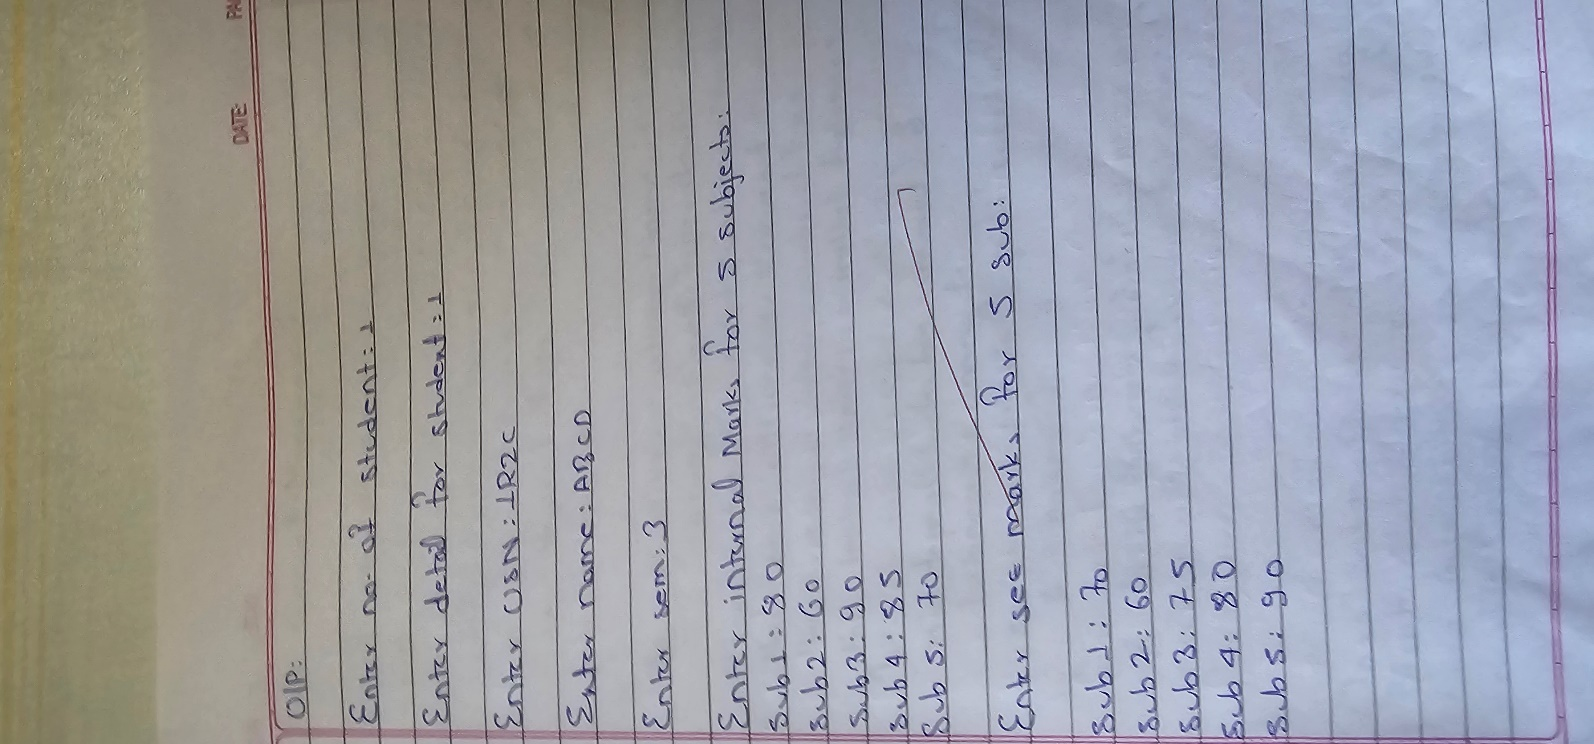 DATE:
O/P:
Enter no. of student: 1
Enter detail for student: 1
Enter USN: 1R2C
Enter name: ABCD
Enter sem: 3
Enter internal Marks for 5 subjects:
Sub1: 80
Sub2: 60
Sub3: 90
Sub4: 85
Sub5: 70
Enter see marks for 5 sub:
Sub1: 70
Sub2: 60
Sub3: 75
Sub4: 80
Sub5: 90